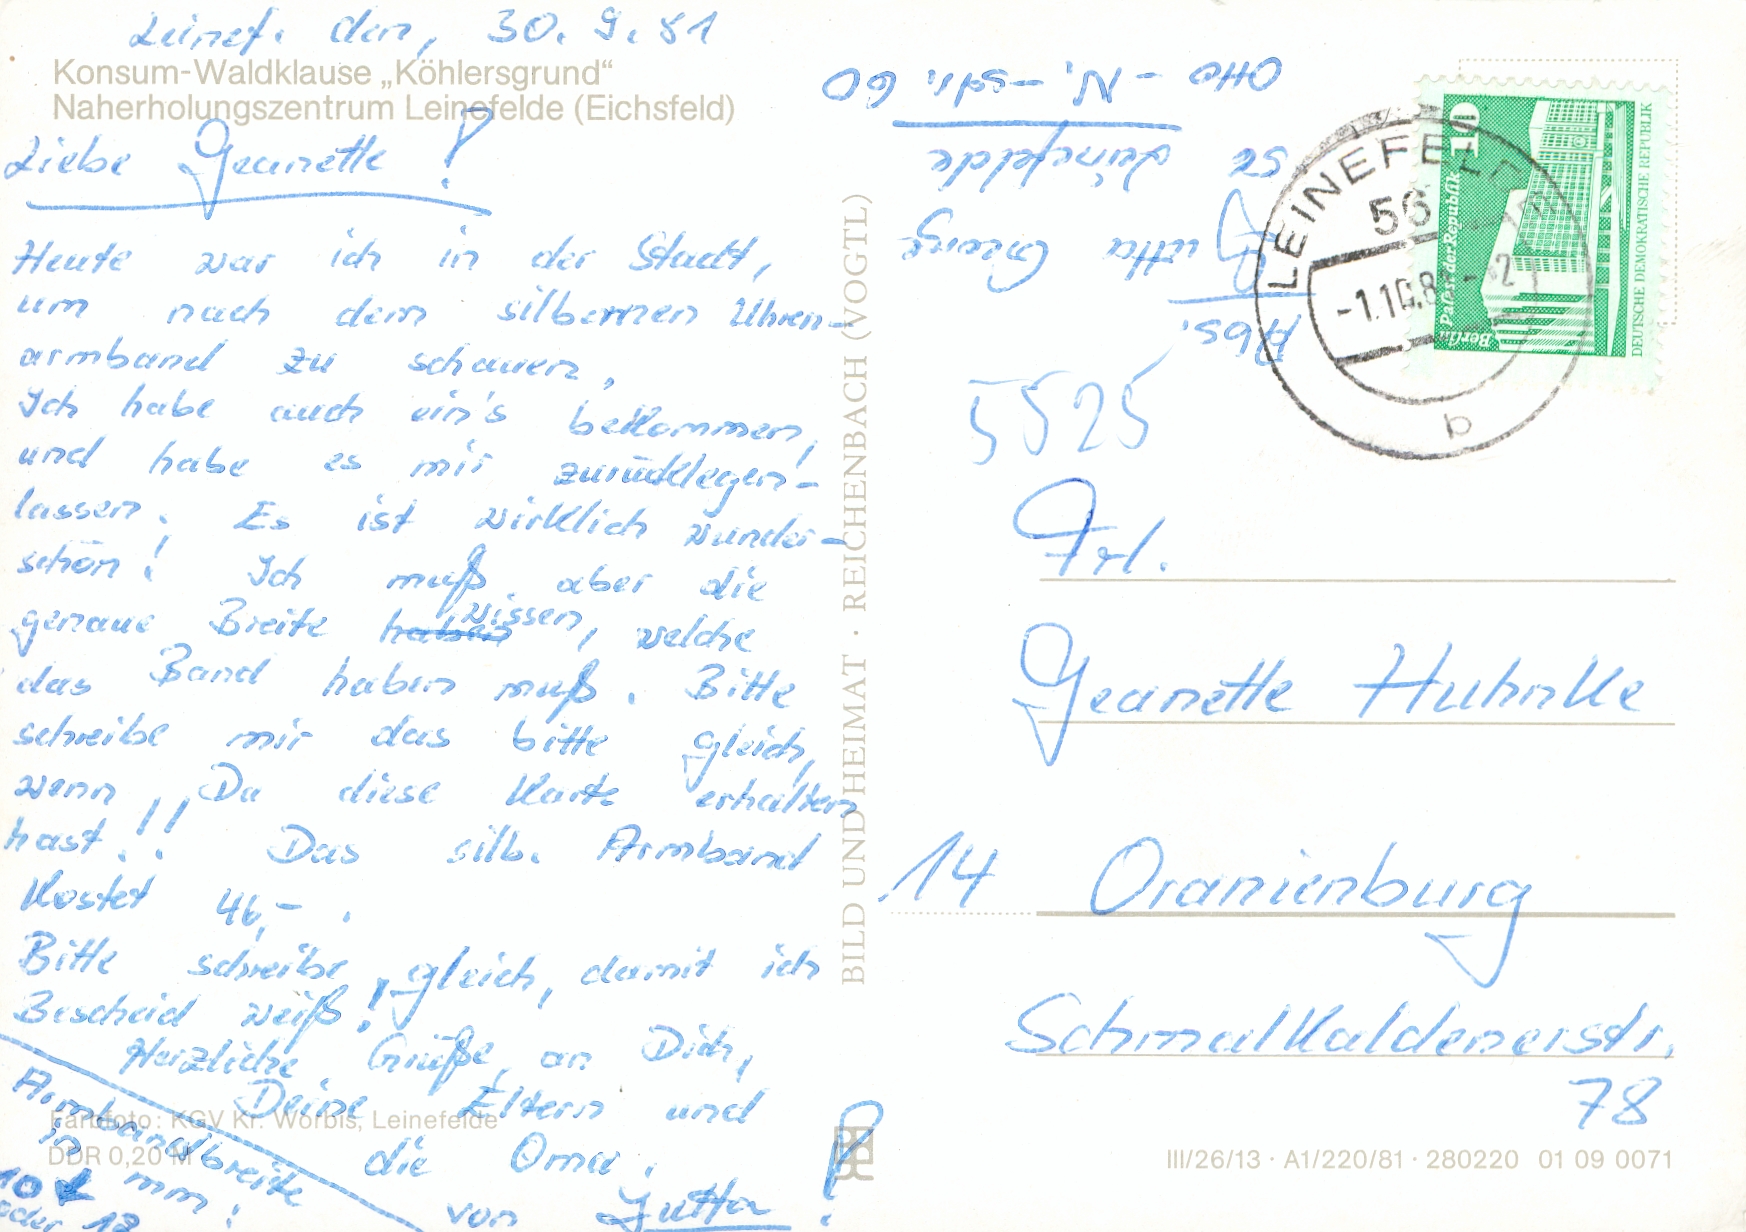 Leinef. den, 30.9.81
Konsum-Waldklause „Köhlersgrund“
Naherholungszentrum Leinefelde (Eichsfeld)
Liebe Geanette!
Heute war ich in der Stadt,
um nach dem silbernen Uhren-
armband zu schauen,
Ich habe auch ein's bekommen,
und habe es mir zurücklegen-
lassen. Es ist wirklich wunder-
schön! Ich muß aber die
genaue Breite haben wissen, welche
das Band haben muß. Bitte
schreibe mir das bitte gleich,
wenn Du diese Karte erhalten
hast!! Das silb. Armband
kostet 46,-.
Bitte schreibe gleich, damit ich
Bescheid weiß!
Herzliche Grüße, an Dich,
Deine Eltern und
die Oma,
von Jutta!
Armbandbreite
in mm:
10
oder 12
Farbfoto: KGV Kr. Worbis, Leinefelde
DDR 0,20 M
BILD UND HEIMAT · REICHENBACH (VOGTL)
Abs.
Jutta
56 Leinefelde
Otto-N.-Str. 60
LEINEFELDE
56
-1.10.8 - 2
b
10
Palast der Republik
Berlin
DEUTSCHE DEMOKRATISCHE REPUBLIK
5525
Frl.
Geanette Huhnke
14 Oranienburg
Schmalkaldenerstr.
78
III/26/13 · A1/220/81 · 280220 01 09 0071